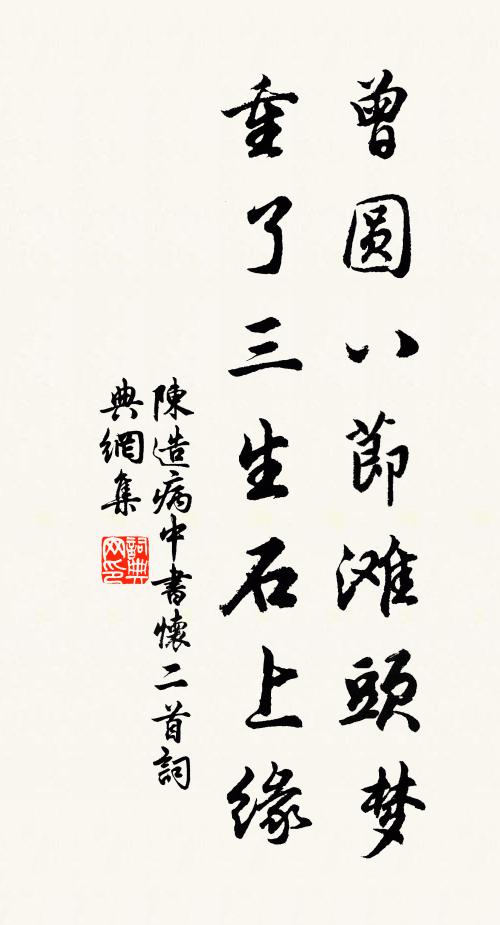 曾圆八節滩頭梦
重了三生石上缘
陳造病中書懷二首詞
典網集
詞典
网印